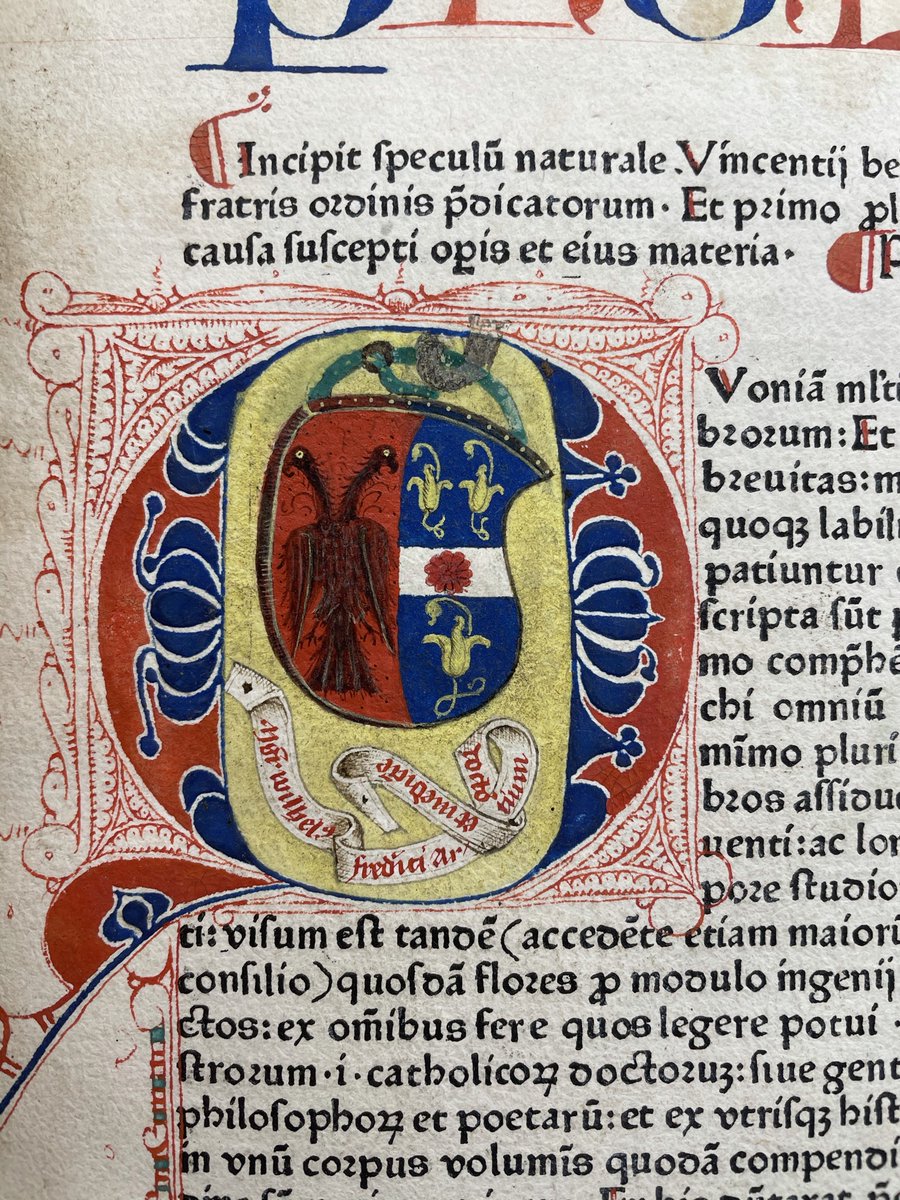 Incipit speculū naturale Vincentij be
fratris ordinis p̄dicatorum. Et primo ꝓl
causa suscepti oꝑis et eius materia.
Voniā ml'ti
brorum: Et
brevitas: m
quoqꝫ labili
patiuntur
scripta sūt p
mo comp̄hē
chi omniū
mīmo pluri
bros assidue
uenti: ac lon
pore studio
ti: visum est tandē (accedēte etiam maiorū
consilio) quosdā flores ꝓ modulo ingenij
ctos: ex om̄ibus fere quos legere potui
strorum .i. catholicoꝝ doctoruꝫ: siue gent
philosophoꝝ et poetarū: et ex vtrisqꝫ hist
in vnū corpus voluminīs quodā compendi
fredīci Ar
medicine